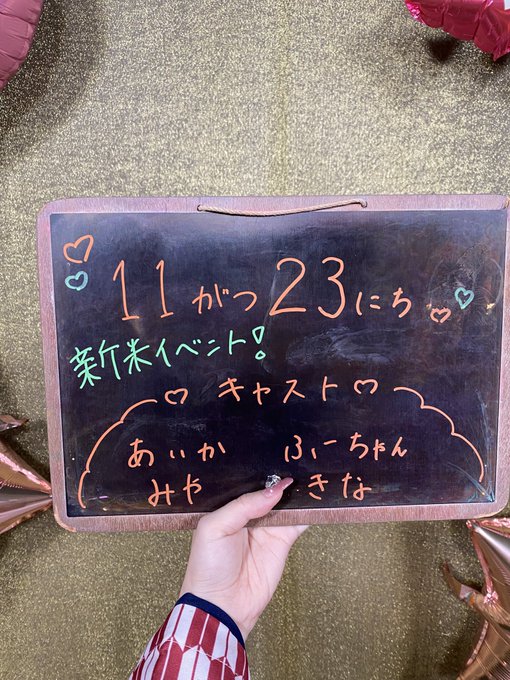 11がつ23にち
新米イベント!
♡キャスト♡
あいか ふーちゃん
みや きな